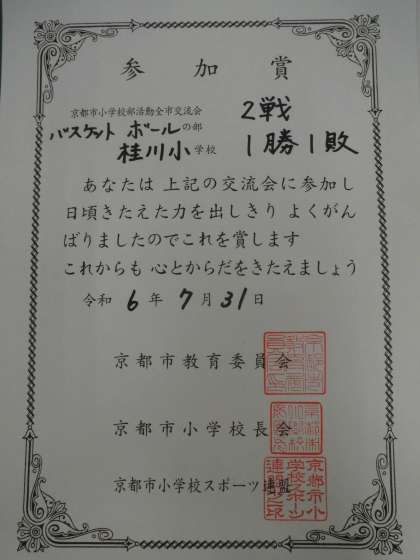 参加賞
京都市小学校部活動全市交流会
バスケットボールの部
2戦
桂川小学校
1勝1敗
あなたは 上記の交流会に参加し
日頃きたえた力を出しきり よくがん
ばりましたのでこれを賞します
これからも 心とからだをきたえましょう
令和 6 年 7 月 31 日
京都市教育委員会
京都市小学校長会
京都市小学校スポーツ連盟